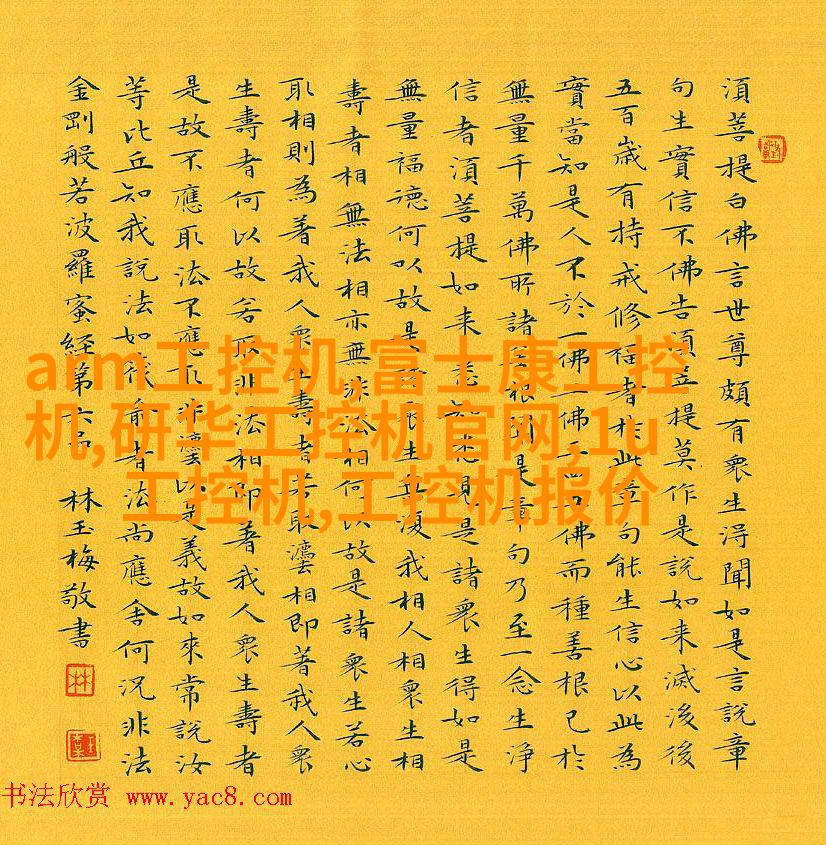 須菩提白佛言世尊頗有衆生得聞如是言說章
句生實信不佛告須菩提莫作是說如来滅後後
五百歲有持戒修福者於此章句能生信心以此為
實當知是人不於一佛二佛三四五佛而種善根已於
無量千萬佛所諸善根聞是章句乃至一念生淨
信者須菩提如来悉知悉見是諸衆生得如是
無量福德何以故是諸衆生無復我相人相衆生相
壽者相無法相亦無非法相何以故是諸衆生若心
取相則為著我人衆生壽者若取灋相即著我人衆
生壽者何以故若取非法相即著我人衆生壽者
是故不應取法不應取非灋以是義故如來常說汝
等比丘知我說法如筏喻者法尚應舍何況非法
金剛般若波羅蜜經第六品 林玉梅敬書
林
arm工控机,富士康工控
机,研华工控机官网,1u
工控机,工控机报价
书法欣赏 www.yac8.com